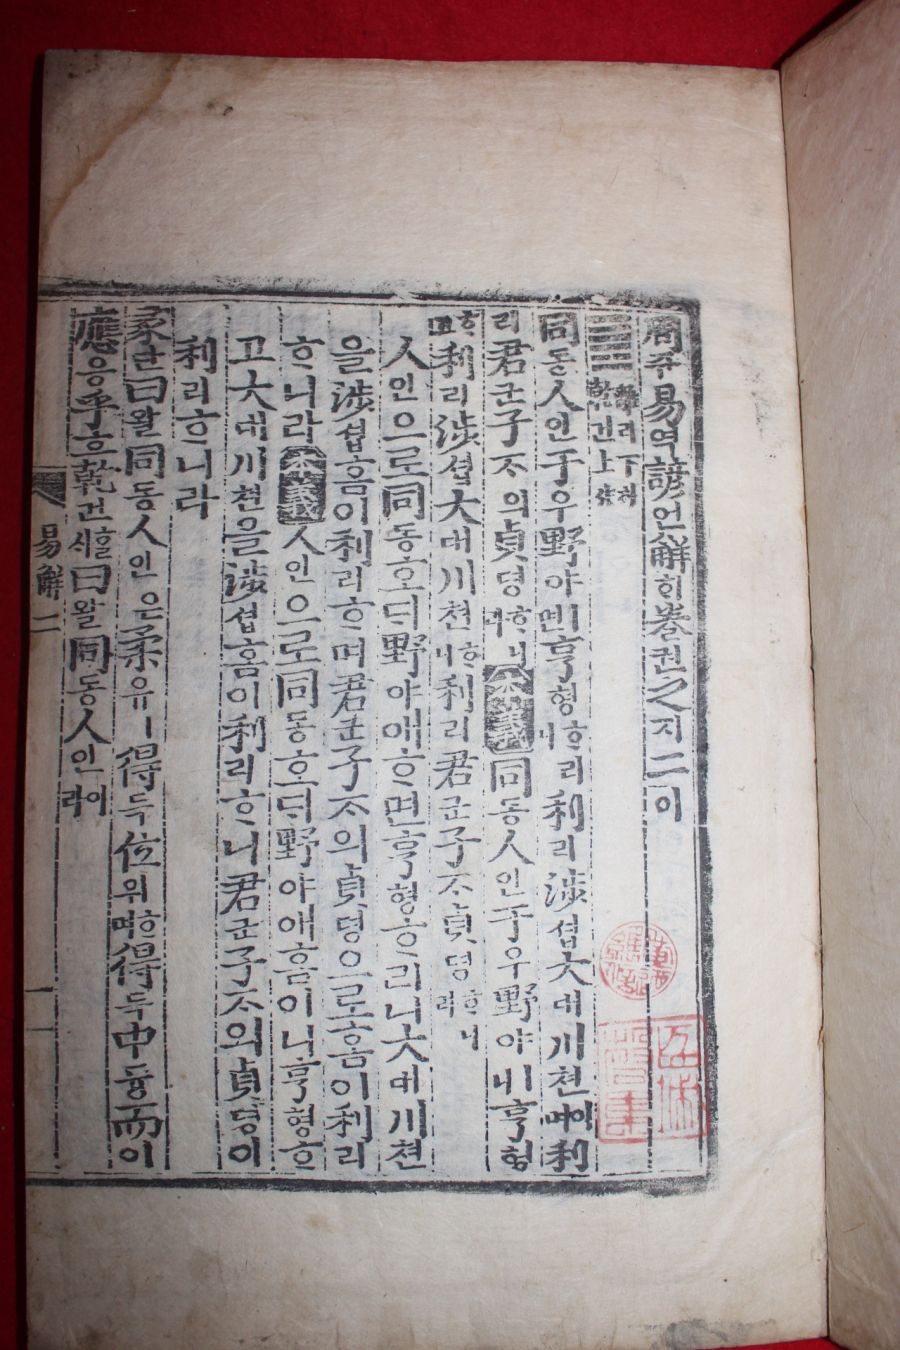 周쥬易역諺언解ᄒᆡ卷권之지二이
離리下하 乾건上샹
同동人인于우野야면亨형ᄒᆞ리니利리涉셥大대川쳔이며利
리君군子ᄌᆞ의貞뎡ᄒᆞ니라 本義 同동人인于우野야ㅣ니亨형
ᄒᆞ고利리涉셥大대川쳔ᄒᆞ니利리君군子ᄌᆞ貞뎡ᄒᆞ니라
人인으로同동호ᄃᆡ野야애ᄒᆞ면亨형ᄒᆞ리니大대川쳔
을涉셥홈이利리ᄒᆞ며君군子ᄌᆞ의貞뎡으로홈이利리
ᄒᆞ니라 本義 人인으로同동호ᄃᆡ野야애홈이니亨형ᄒᆞ
고大대川쳔을涉셥홈이利리ᄒᆞ니君군子ᄌᆞ의貞뎡이
利리ᄒᆞ니라
彖단曰왈同동人인은柔유ㅣ得득位위ᄒᆞ며得득中듕而이
應응乎호乾건ᄒᆞᆯᄉᆡ曰왈同동人인이라
易解二
一